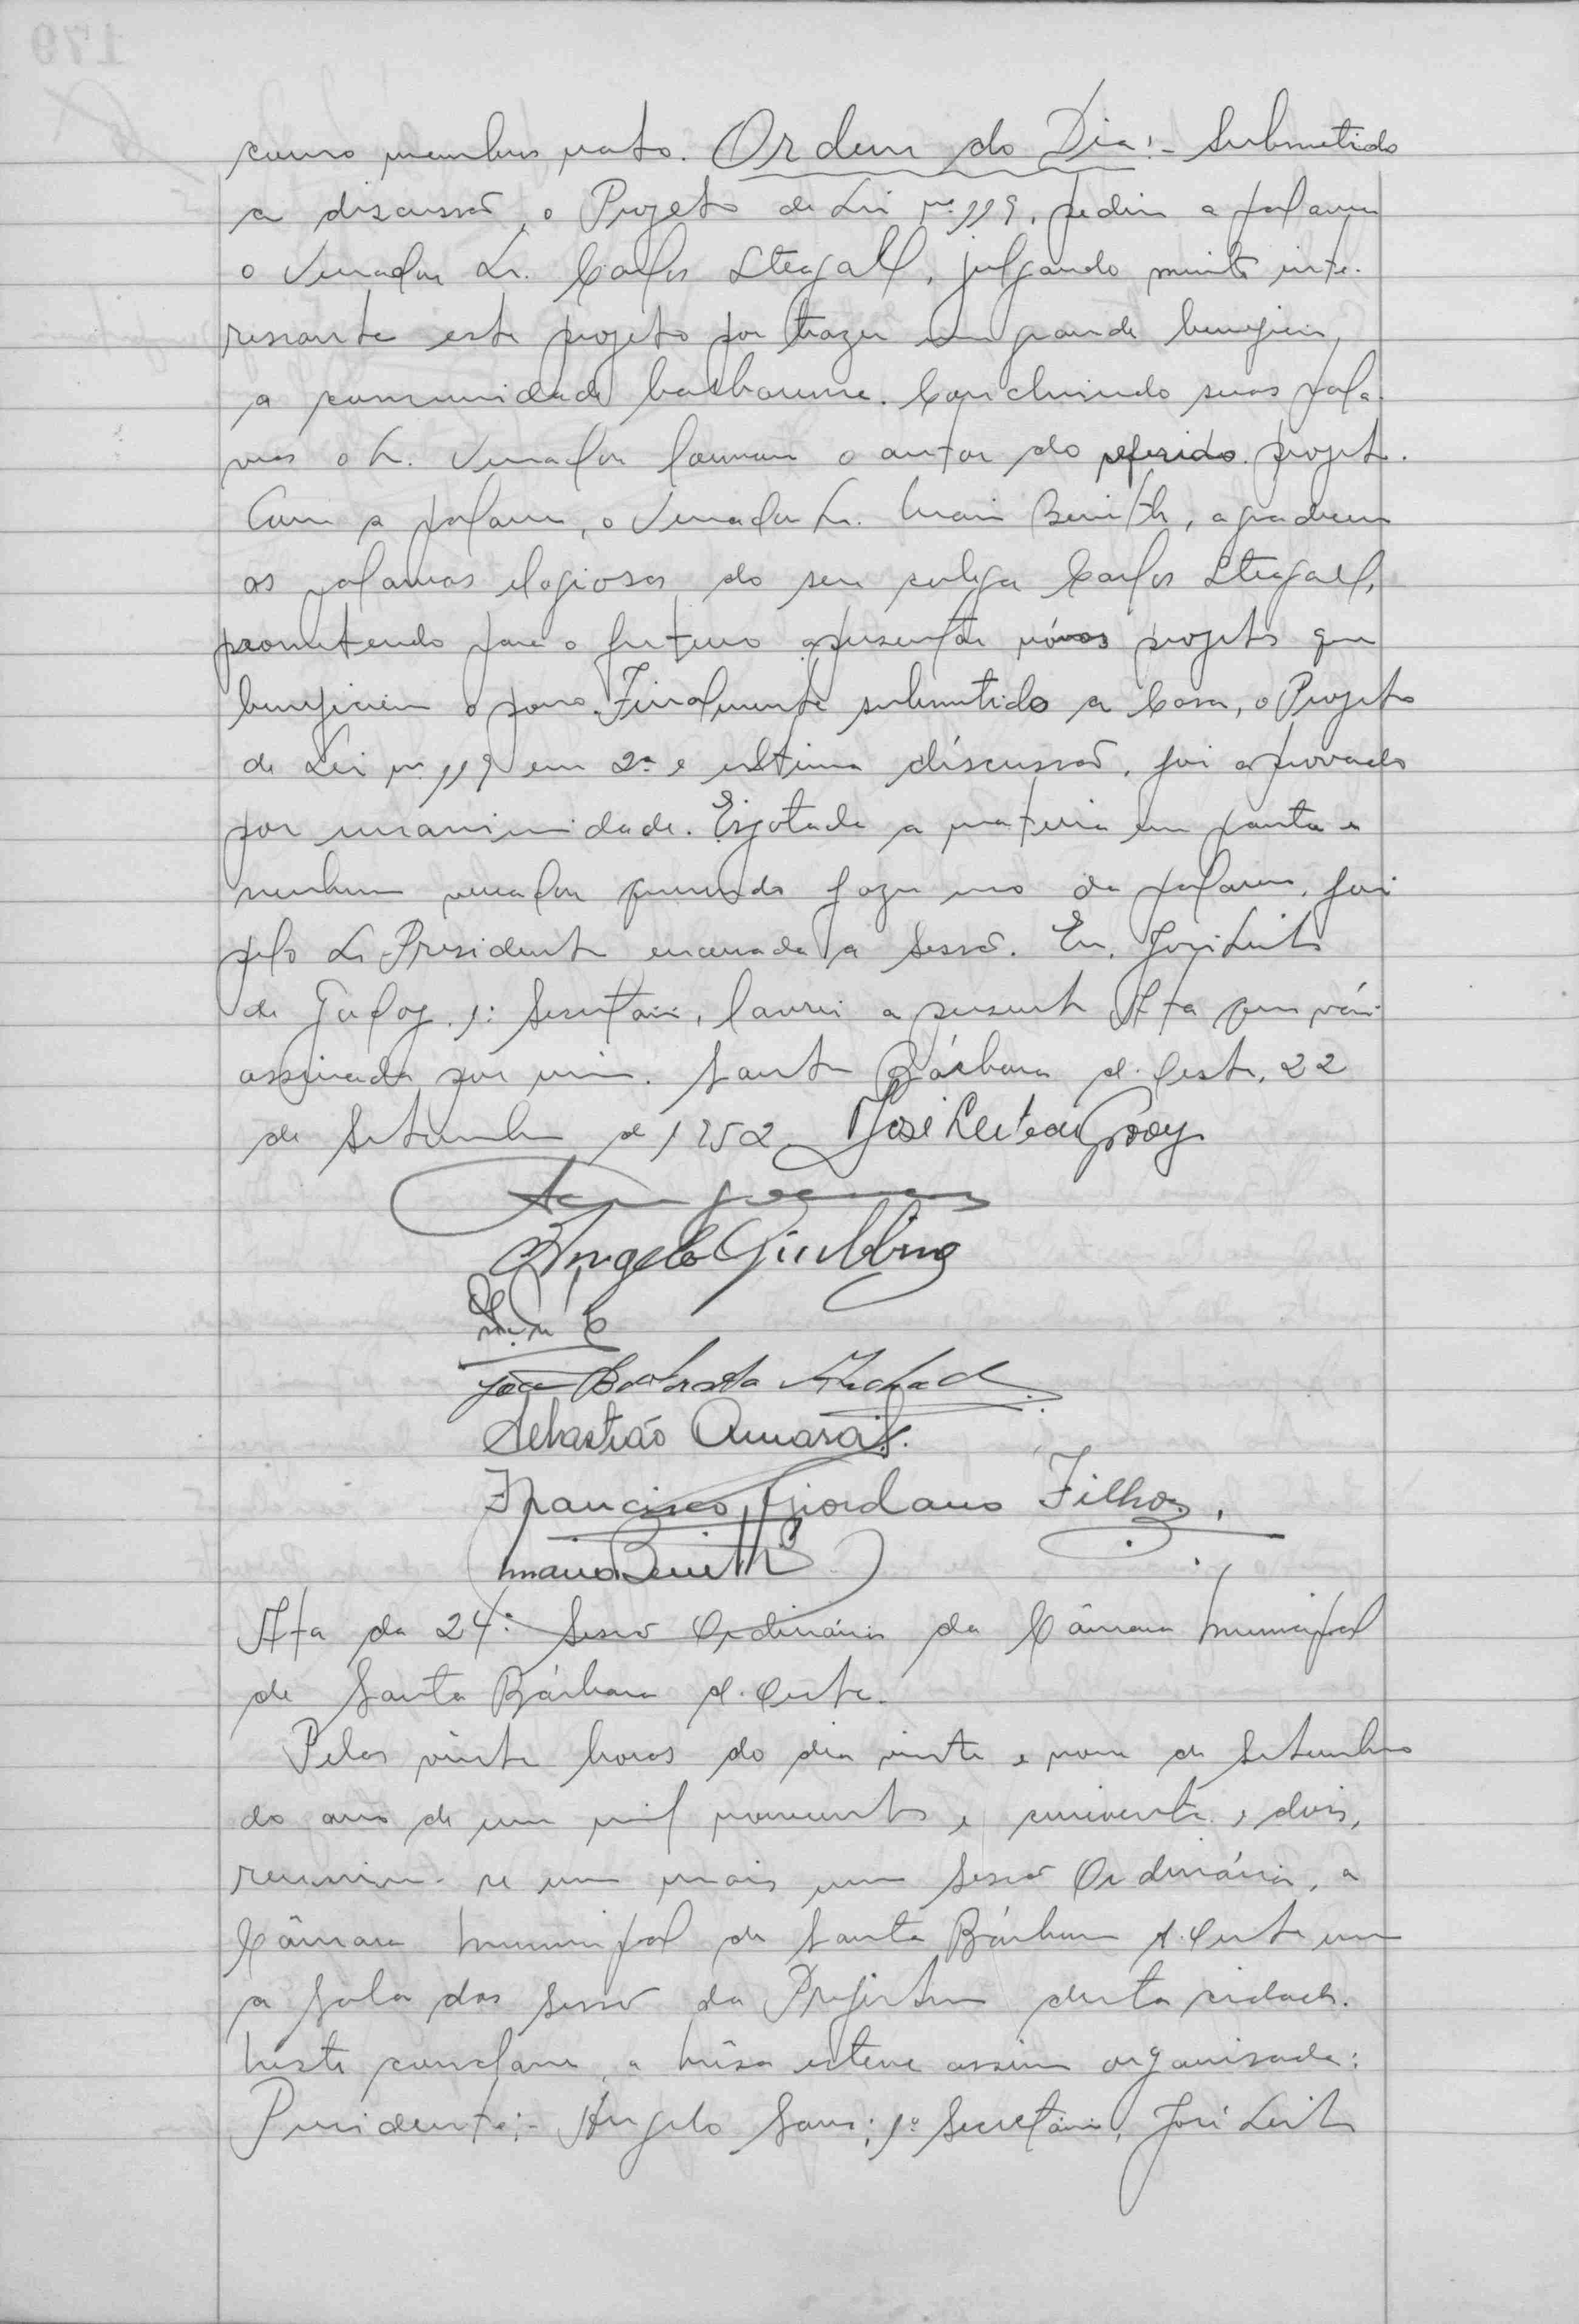 como membros nato. Ordem do Dia:- Submetido
a discussão, o Projeto de Lei nº 119, pediu a palavra
o Vereador Sr. Carlos Steagall, julgando muito inte-
ressante este projeto por trazer um grande beneficio,
a comunidade barbarense. Concluindo suas pala-
vras o Sr. Vereador louvou o autor do referido projeto.
Com a palavra, o Vereador Sr. Mario Benith, agradeceu
as palavras elogiosas do seu colega Carlos Steagall,
prometendo para o futuro apresentar nóvos projetos que
beneficiem o povo. Finalmente submetido a Casa, o Projeto
de Lei nº 119 em 2ª e ultima discussão, foi aprovado
por unanimidade. Esgotada a materia em pauta e
nenhum vereador querendo fazer uso da palavra, foi
pelo Sr Presidente encerrada a Sessão. Eu, José Leite
de Godoy, 1º Secretário, lavrei a presente Ata que vái
assinada por mim. Santa Bárbara d. Oeste, 22
de Setembro de 1952 José Leite de Godoy
Angelo Giubbina
João Baptista Machado
Sebastião Amaral.
Francisco Giordano Filho.
Mario Benith
Ata da 24ª Sessão Ordinária da Câmara Municipal
de Santa Bárbara d. Oeste.
Pelas vinte horas do dia vinte e nove de Setembro
do ano de um mil novecentos e cincoenta e dois,
reuniu-se em mais uma Sessão Ordinária, a
Câmara Municipal de Santa Bárbara d. Oeste em
a sala das Sessão da Prefeitura desta cidade.
Neste conclave, a mêsa esteve assim organisada:
Presidente:- Angelo Sans; 1º Secretário, José Leite